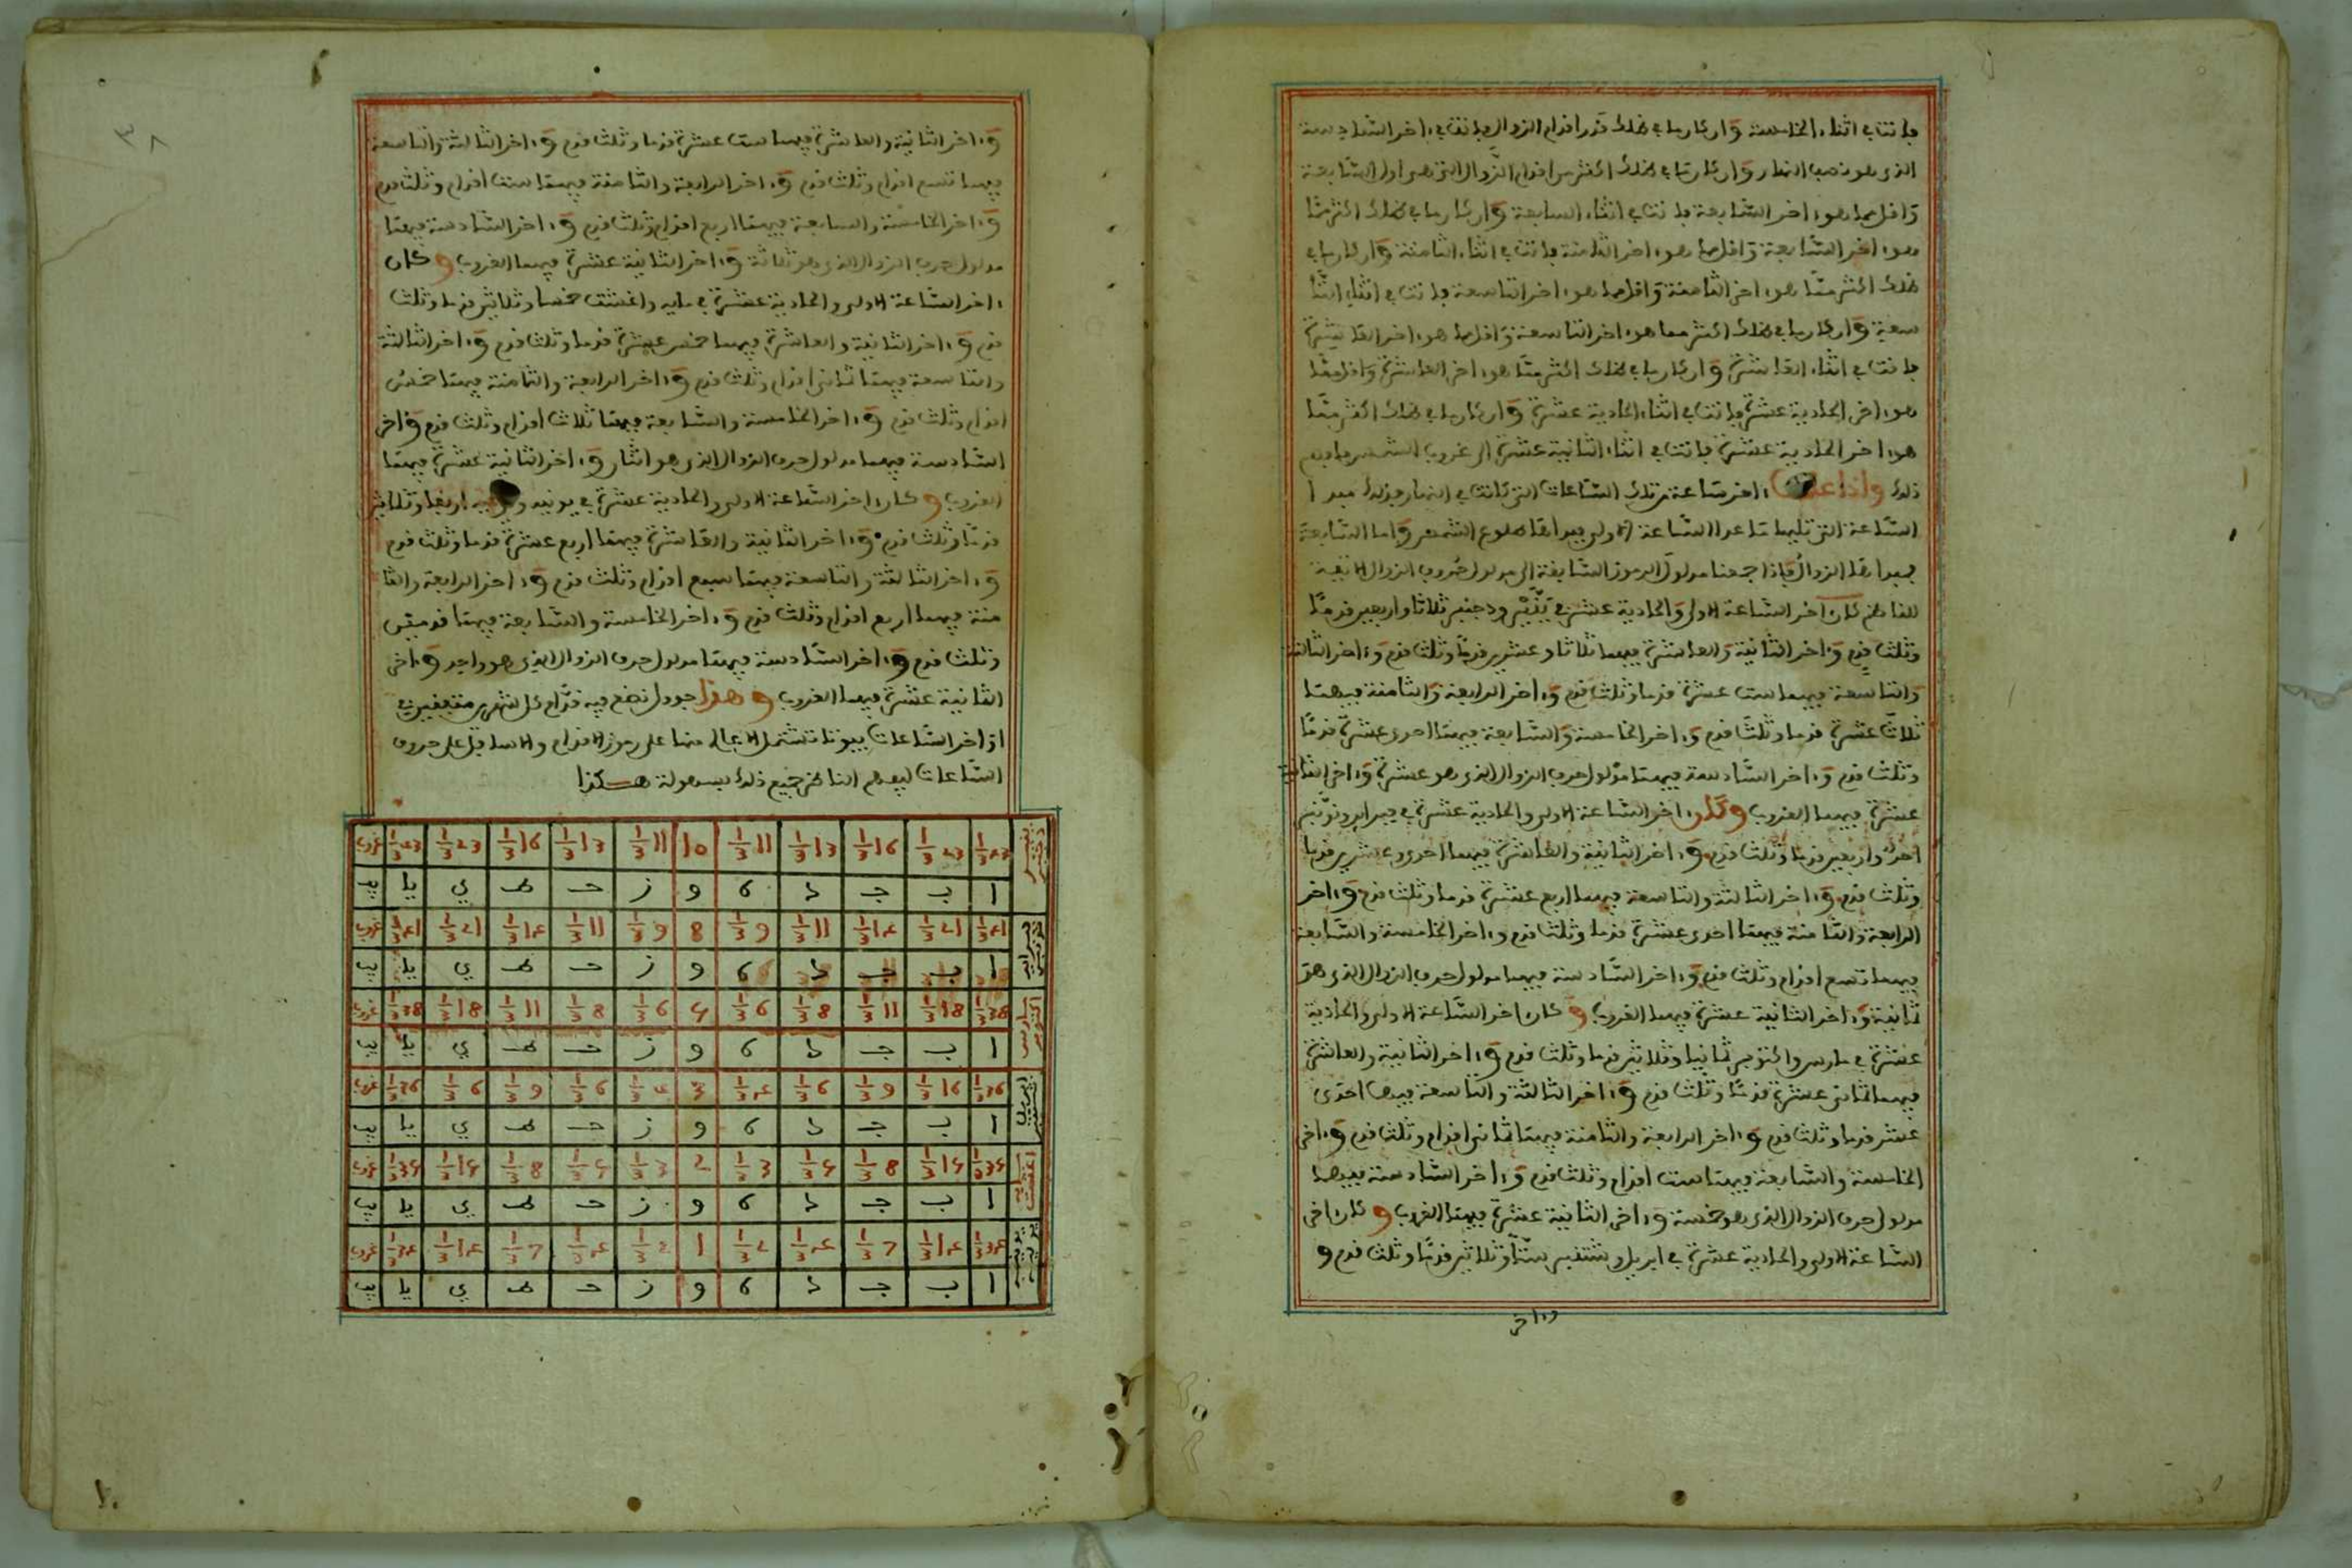 فانت في اثناء الخامسة وان كان ما في ظلك قدر اقدام الزوال فانت في ءاخر السادسة
الذى هو نصف النهار وان كان ما في ظلك اكثر من اقدام الزوال التى هى اول السابعة
واقل مما هو ءاخر السابعة فانت في اثناء السابعة وان كان ما في ظلك اكثر مما
هو ءاخر السابعة واقل مما هو ءاخر الثامنة فانت في اثناء الثامنة وان كان ما في
ظلك اكثر مما هو ءاخر الثامنة واقل مما هو ءاخر التاسعة فانت في اثناء التا
سعة وان كان ما في ظلك اكثر مما هو ءاخر التاسعة واقل مما هو ءاخر العاشرة
فانت في اثناء العاشرة وان كان ما في ظلك اكثر مما هو ءاخر العاشرة واقل مما
هو ءاخر الحادية عشرة فانت في اثناء الحادية عشرة وان كان ما في ظلك اكثر مما
هو ءاخر الحادية عشرة فانت في اثناء الثانية عشرة الى غروب الشمس فافهم
ذلك واذا ءاخر ساعة من تلك الساعات التى كانت في النهار فذلك مبدا
الساعة التى تليها ما عدا الساعة الاولى فمبداها طلوع الشمس واما السابعة
فمبداها الزوال فاذا جمعنا مدلول الرموز السابقة الى مدلول حروف الزوال الاتية
للناظم كان ءاخر الساعة الاولى والحادية عشرة في ينير ودجنبر ثلاثا واربعين قدما
وثلث قدم وءاخر الثانية والعاشرة فيهما ثلاثا وعشرين قدما وثلث قدم وءاخر الثالثة
والتاسعة فيهما ست عشرة قدما وثلث قدم وءاخر الرابعة والثامنة فيهما
ثلاث عشرة قدما وثلث قدم وءاخر الخامسة والسابعة فيهما احدى عشرة قدما
وثلث قدم وءاخر السادسة فيهما مدلول حرف الزوال الذى هو عشرة وءاخر الثانية
عشرة فيهما الغروب وكان ءاخر الساعة الاولى والحادية عشرة في فبراير ونونبر
احدى واربعين قدما وثلث قدم وءاخر الثانية والعاشرة فيهما احدى وعشرين قدما
وثلث قدم وءاخر الثالثة والتاسعة فيهما اربع عشرة قدما وثلث قدم وءاخر
الرابعة والثامنة فيهما احدى عشرة قدما وثلث قدم وءاخر الخامسة والسابعة
فيهما تسع اقدام وثلث قدم وءاخر السادسة فيهما مدلول حرف الزوال الذى هو
ثمانية وءاخر الثانية عشرة فيهما الغروب وكان ءاخر الساعة الاولى والحادية
عشرة في مارس واكتوبر ثمانيا وثلاثين قدما وثلث قدم وءاخر الثانية والعاشرة
فيهما ثماني عشرة قدما وثلث قدم وءاخر الثالثة والتاسعة فيهما احدى
عشر قدما وثلث قدم وءاخر الرابعة والثامنة فيهما ثماني اقدام وثلث قدم وءاخر
الخامسة والسابعة فيهما ست اقدام وثلث قدم وءاخر السادسة فيهما
مدلول حرف الزوال الذى هو خمسة وءاخر الثانية عشرة فيهما الغروب وكان ءاخر
الساعة الاولى والحادية عشرة في ابريل وشتنبر ستا وثلاثين قدما وثلث قدم و
وءاخر
وءاخر الثانية والعاشرة فيهما ست عشرة قدما وثلث قدم وءاخر الثالثة والتاسعة
فيهما تسع اقدام وثلث قدم وءاخر الرابعة والثامنة فيهما ست اقدام وثلث قدم
وءاخر الخامسة والسابعة فيهما اربع اقدام وثلث قدم وءاخر السادسة فيهما
مدلول حرف الزوال الذى هو ثلاثة وءاخر الثانية عشرة فيهما الغروب وكان
ءاخر الساعة الاولى والحادية عشرة في مايه واغشت خمسا وثلاثين قدما وثلث
قدم وءاخر الثانية والعاشرة فيهما خمس عشرة قدما وثلث قدم وءاخر الثالثة
والتاسعة فيهما ثماني اقدام وثلث قدم وءاخر الرابعة والثامنة فيهما خمس
اقدام وثلث قدم وءاخر الخامسة والسابعة فيهما ثلاث اقدام وثلث قدم وءاخر
السادسة فيهما مدلول حرف الزوال الذى هو اثنان وءاخر الثانية عشرة فيهما
الغروب وكان ءاخر الساعة الاولى والحادية عشرة في يونيه اربعا وثلاثين
قدما وثلث قدم وءاخر الثانية والعاشرة فيهما اربع عشرة قدما وثلث قدم
وءاخر الثالثة والتاسعة فيهما سبع اقدام وثلث قدم وءاخر الرابعة والثا
منة فيهما اربع اقدام وثلث قدم وءاخر الخامسة والسابعة فيهما قدمين
وثلث قدم وءاخر السادسة فيهما مدلول حرف الزوال الذى هو واحد وءاخر
الثانية عشرة فيهما الغروب وهذا جدول نضع فيه قدام كل شهرين متفقين في
اواخر الساعات بيوتا تشتمل الاعالى منها على رموز الاقدام والاسافل على حروف
الساعات ليفهم الناظر جميع ذلك بسهولة هكذا
ينير دجنبر 43 1/3 23 1/3 16 1/3 13 1/3 11 1/3 10 11 1/3 13 1/3 16 1/3 23 1/3 43 1/3 غروب
ا ب ج د ه و ز ح ط ي يا يب
فبراير نونبر 41 1/3 21 1/3 14 1/3 11 1/3 9 1/3 8 9 1/3 11 1/3 14 1/3 21 1/3 41 1/3 غروب
ا ب ج د ه و ز ح ط ي يا يب
مارس اكتوبر 38 1/3 18 1/3 11 1/3 8 1/3 6 1/3 5 6 1/3 8 1/3 11 1/3 18 1/3 38 1/3 غروب
ا ب ج د ه و ز ح ط ي يا يب
ابريل شتنبر 36 1/3 16 1/3 9 1/3 6 1/3 4 1/3 3 4 1/3 6 1/3 9 1/3 6 1/3 36 1/3 غروب
ا ب ج د ه و ز ح ط ي يا يب
مايه اغشت 35 1/3 15 1/3 8 1/3 5 1/3 3 1/3 2 3 1/3 5 1/3 8 1/3 15 1/3 35 1/3 غروب
ا ب ج د ه و ز ح ط ي يا يب
34 1/3 14 1/3 7 1/3 4 1/3 2 1/3 1 2 1/3 4 1/3 7 1/3 14 1/3 34 1/3 غروب
ا ب ج د ه و ز ح ط ي يا يب